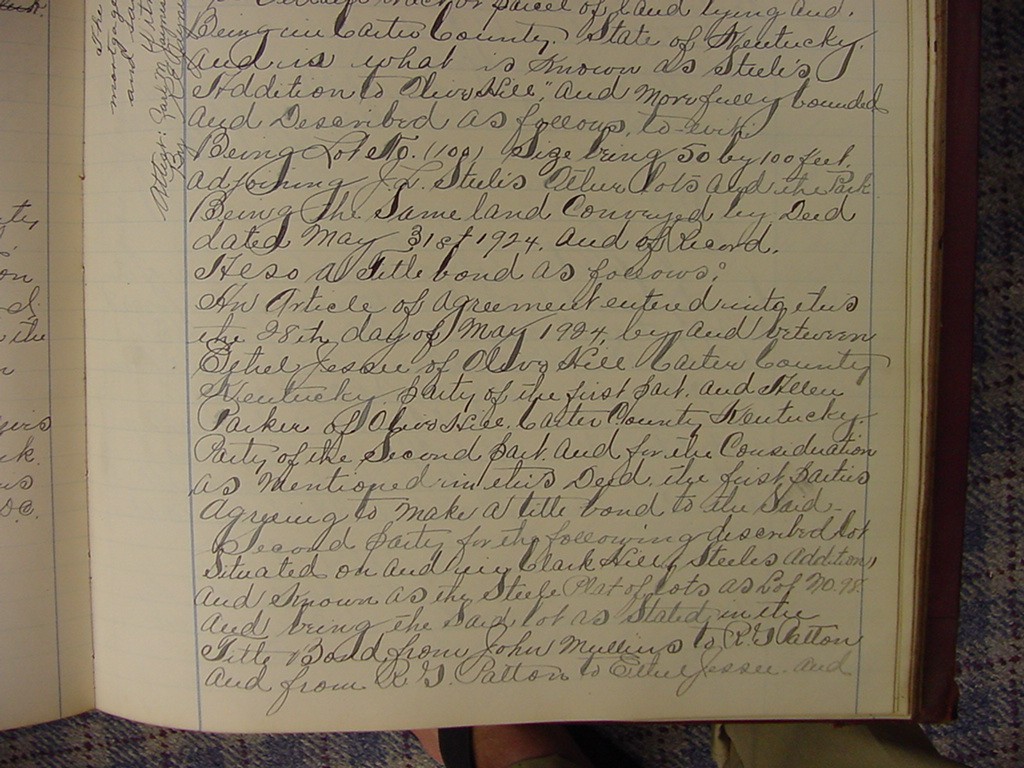 parcel of land lying and.
Being in Carter County. State of Kentucky.
and is what is Known as Steel's
Addition to Olive Hill," and More fully bounded
and Described as follows, to-wit,
Being Lot No. (100) Size being 50 by 100 feet.
adjoining J.L. Steel's Other lots and the Park
Being the Same land Conveyed by Deed
dated May 31st 1924, and of Record.
Also a Title bond as follows:
An Article of Agreement entered into this
the 28th day of May 1924, by and between
Ethel Jessee of Olive Hill Carter County
Kentucky party of the first part. and Allen
Parker of Olive Hill. Carter County Kentucky.
Party of the Second part. and for the Consideration
as Mentioned in this Deed, the first parties
Agreeing to Make a title bond to the Said
Second party for the following described lot
Situated on and in Clark Hill, Steeles Addition,
and Known as the Steele Plat of lots as Lot No. 98.
and being the Said lot as Stated in the
Title Bond from John Mullins to R.T. Patton
and from R.T. Patton to Ethel Jessee. and
the